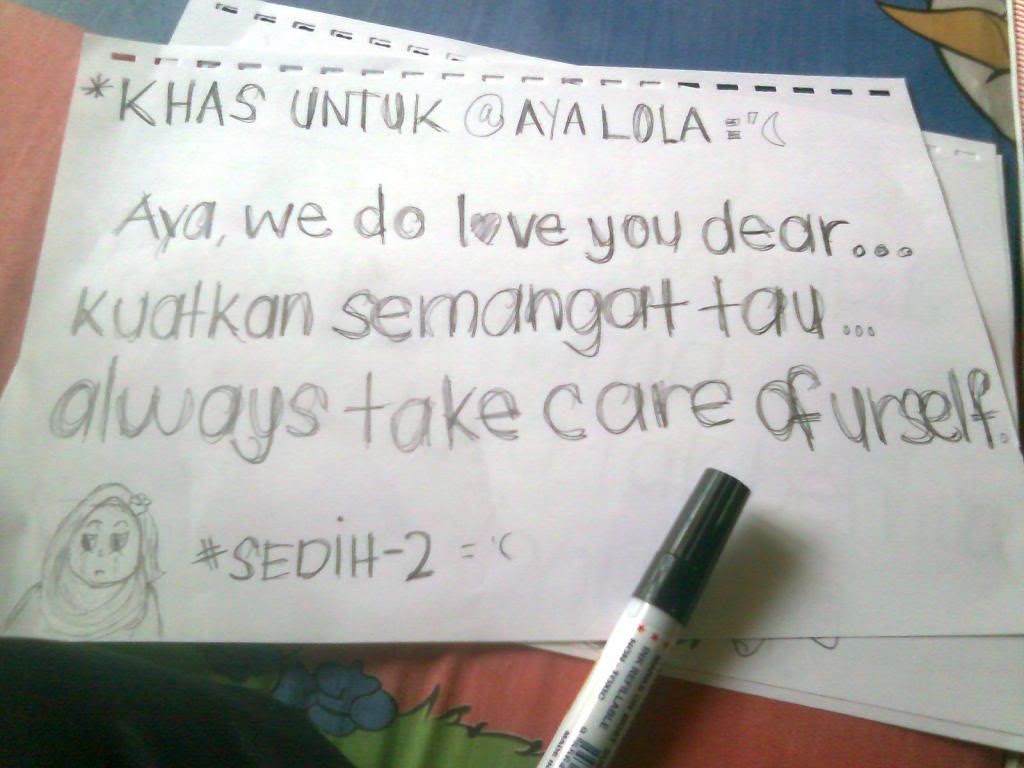 *KHAS UNTUK @AYALOLA ='(
Aya, we do love you dear...
kuatkan semangat tau...
always take care of urself.
#SEDIH-2 ='(
INK REFILLABLE
NON-TOXIC